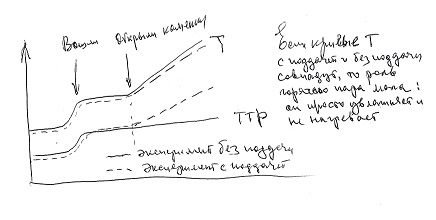 Вошли
открыли каменку
T
Если кривые T
с поддачей и без поддачи
совпадут, то роль
горячего пара мала:
он просто увлажняет и
не нагревает
ТТР
эксперимент без поддачи
эксперимент с поддачей